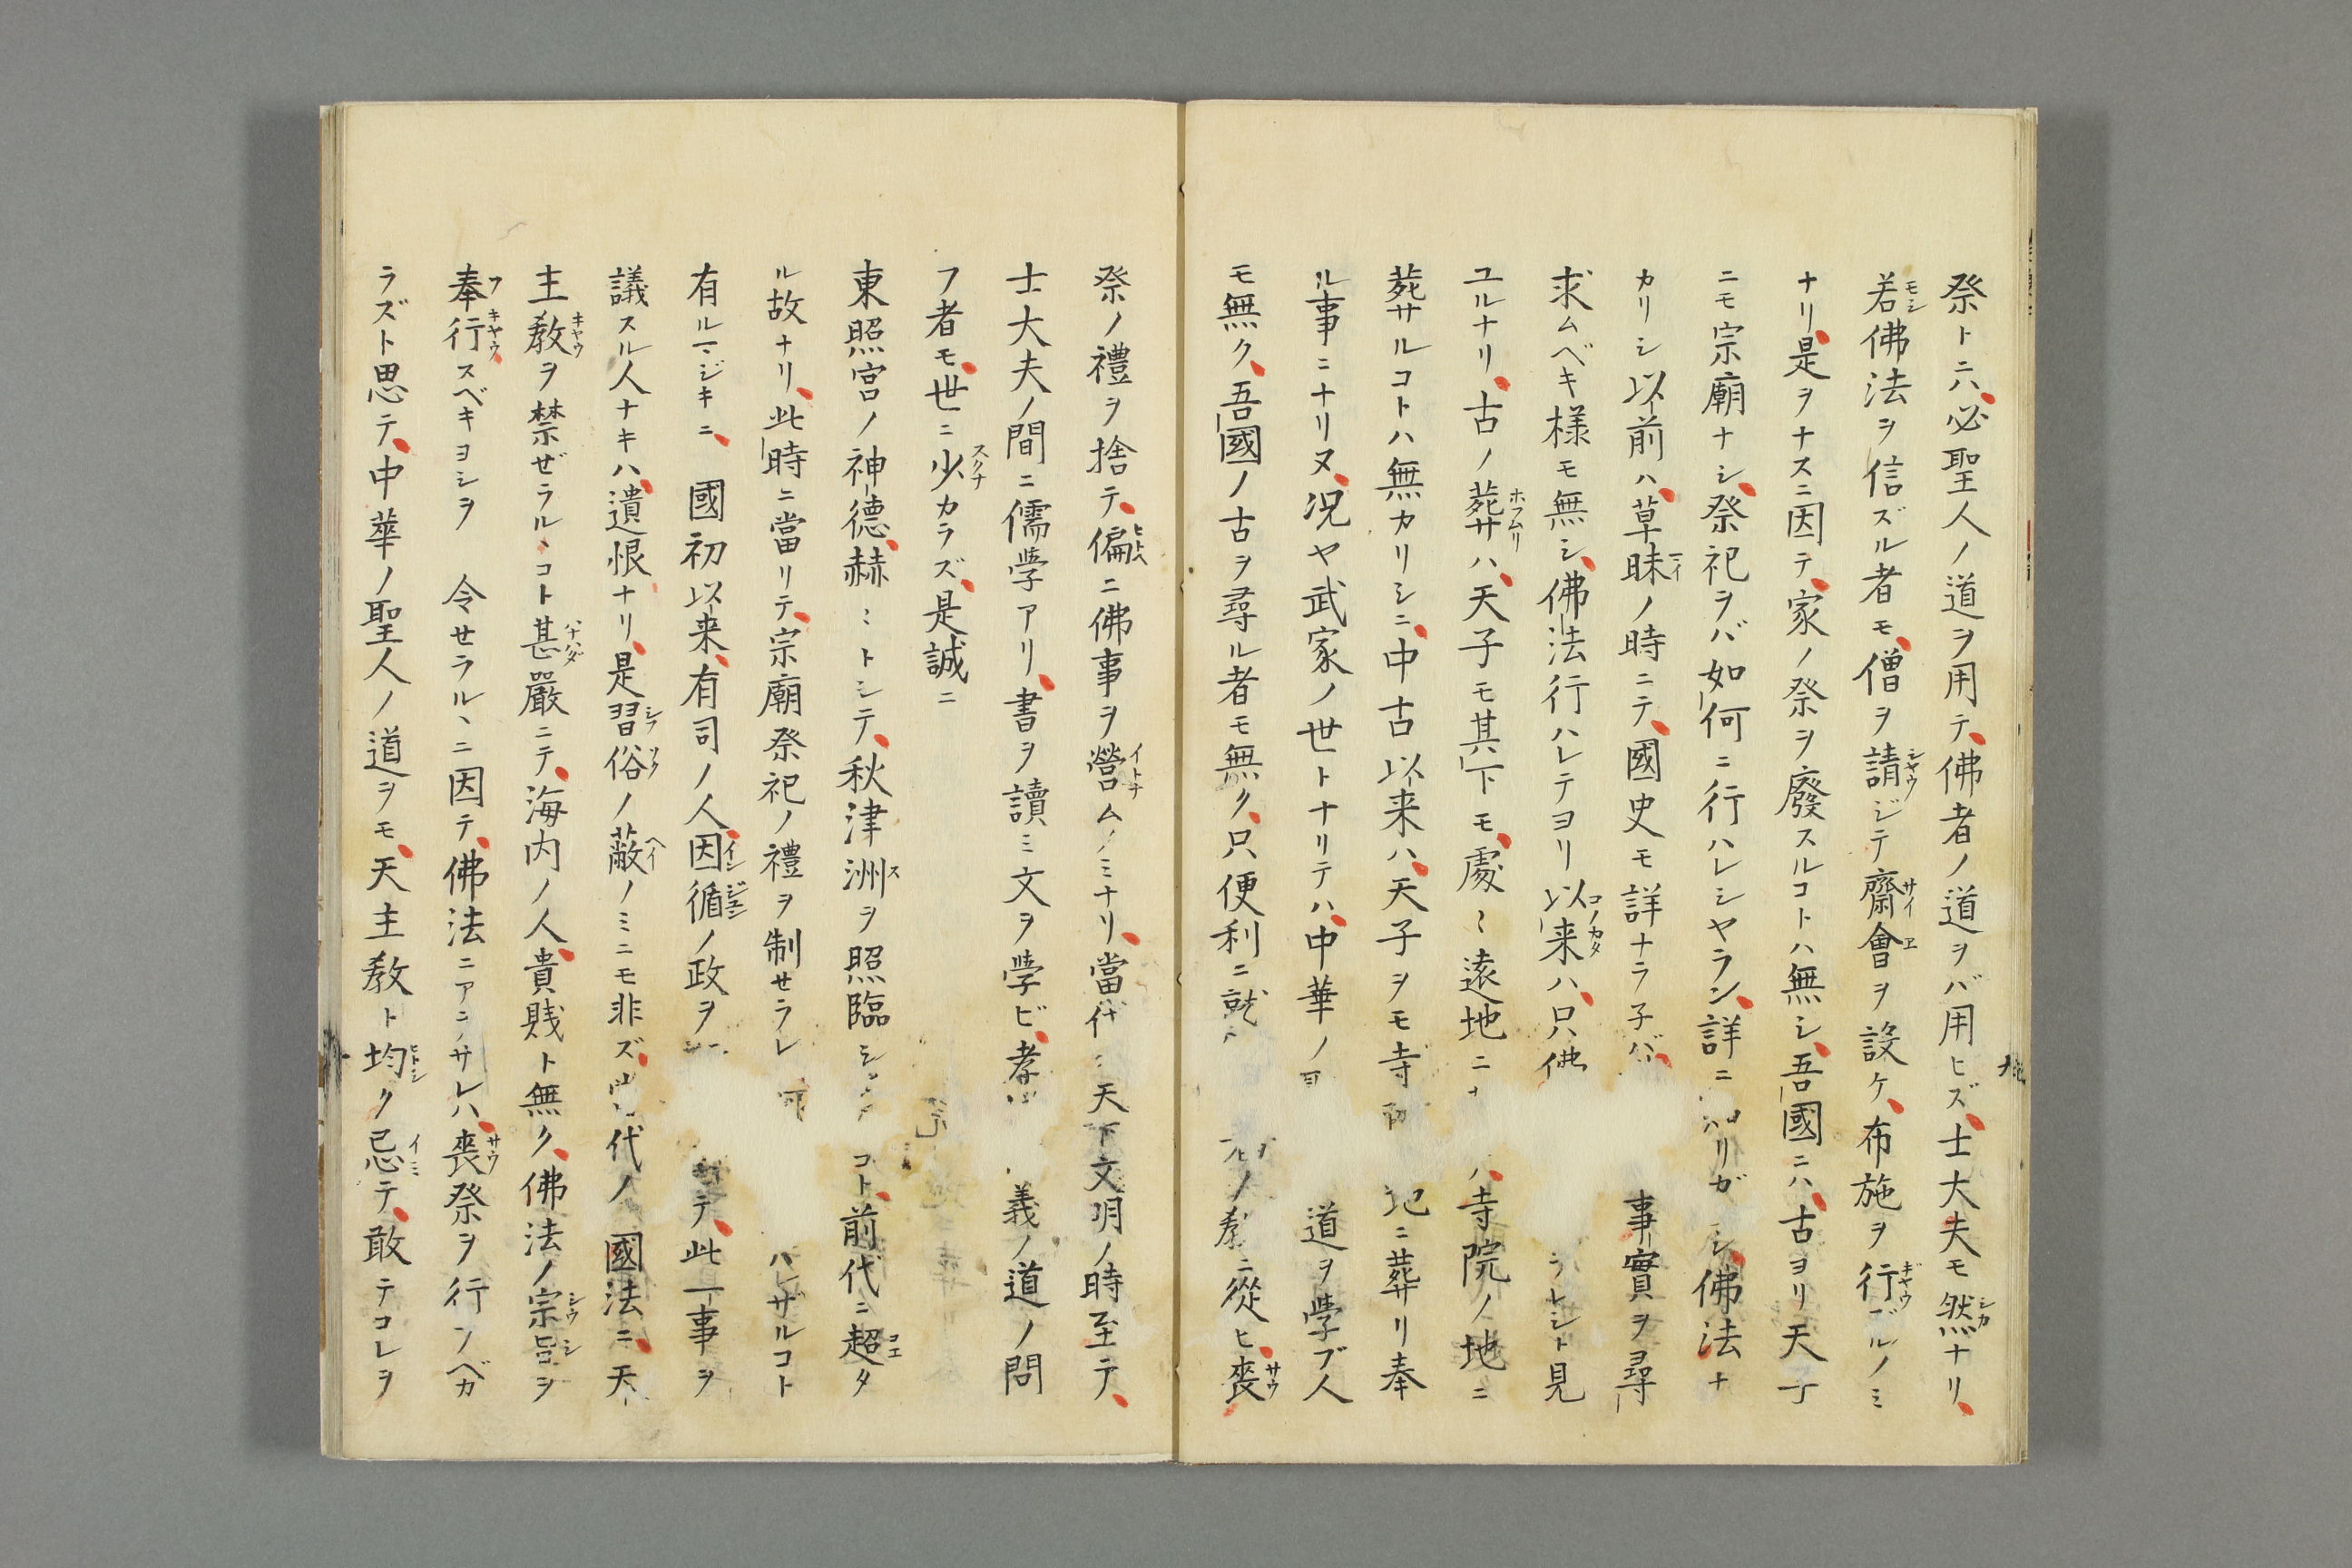 祭トニハ、必聖人ノ道ヲ用テ、佛者ノ道ヲバ用ヒズ、士大夫モ然ナリ、
若佛法ヲ信ズル者モ、僧ヲ請ジテ齋會ヲ設ケ、布施ヲ行ズルノミ
ナリ、是ヲナスニ因テ、家ノ祭ヲ廢スルコトハ無シ、吾國ニハ、古ヨリ天下
ニモ宗廟ナシ、祭祀ヲバ如何ニ行ハレシヤラン、詳ニ リガ シ、佛法ナ
カリシ以前ハ、草昧ノ時ニテ、國史モ詳ナラ子バ、 事實ヲ尋
求ムベキ様モ無シ、佛法行ハレテヨリ以来ハ、只佛 ラレシト見
ユルナリ、古ノ葬ハ、天子モ其下モ、處〻遠地ニナ ハ、寺院ノ地ニ
葬サルコトハ無カリシニ、中古以来ハ、天子ヲモ寺 地ニ葬リ奉
ル事ニナリヌ、况ヤ武家ノ世トナリテハ、中華ノ 道ヲ学ブ人
モ無ク、吾國ノ古ヲ尋ル者モ無ク、只便利ニ就 ノ教ニ從ヒ、喪
祭ノ禮ヲ捨テ、偏ニ佛事ヲ營ムノミナリ、當代ニ天下文明ノ時至テ、
士大夫ノ間ニ儒学アリ、書ヲ讀ミ文ヲ学ビ、孝 義ノ道ノ問
フ者モ、世ニ少カラズ、是誠ニ
東照宮ノ神德、赫〻トシテ、秋津洲ヲ照臨シ コト、前代ニ超タ
ル故ナリ、此時ニ當リテ、宗廟祭祀ノ禮ヲ制セラレ 可 ハレザルコト
有ルマジキニ、 國初以来、有司ノ人因循ノ政ヲ テ、此一事ヲ
議スル人ナキハ、遺恨ナリ、是習俗ノ蔽ノミニモ非ズ、 代ノ 國法ニ、天
主教ヲ禁ゼラルヽコト甚嚴ニテ、海内ノ人、貴賤ト無ク、佛法ノ宗旨ヲ
奉行スベキヨシヲ 令セラルヽニ因テ、佛法ニアラサレハ、喪祭ヲ行フベカ
ラズト思テ、中華ノ聖人ノ道ヲモ、天主教ト均ク忌テ、敢テコレヲ